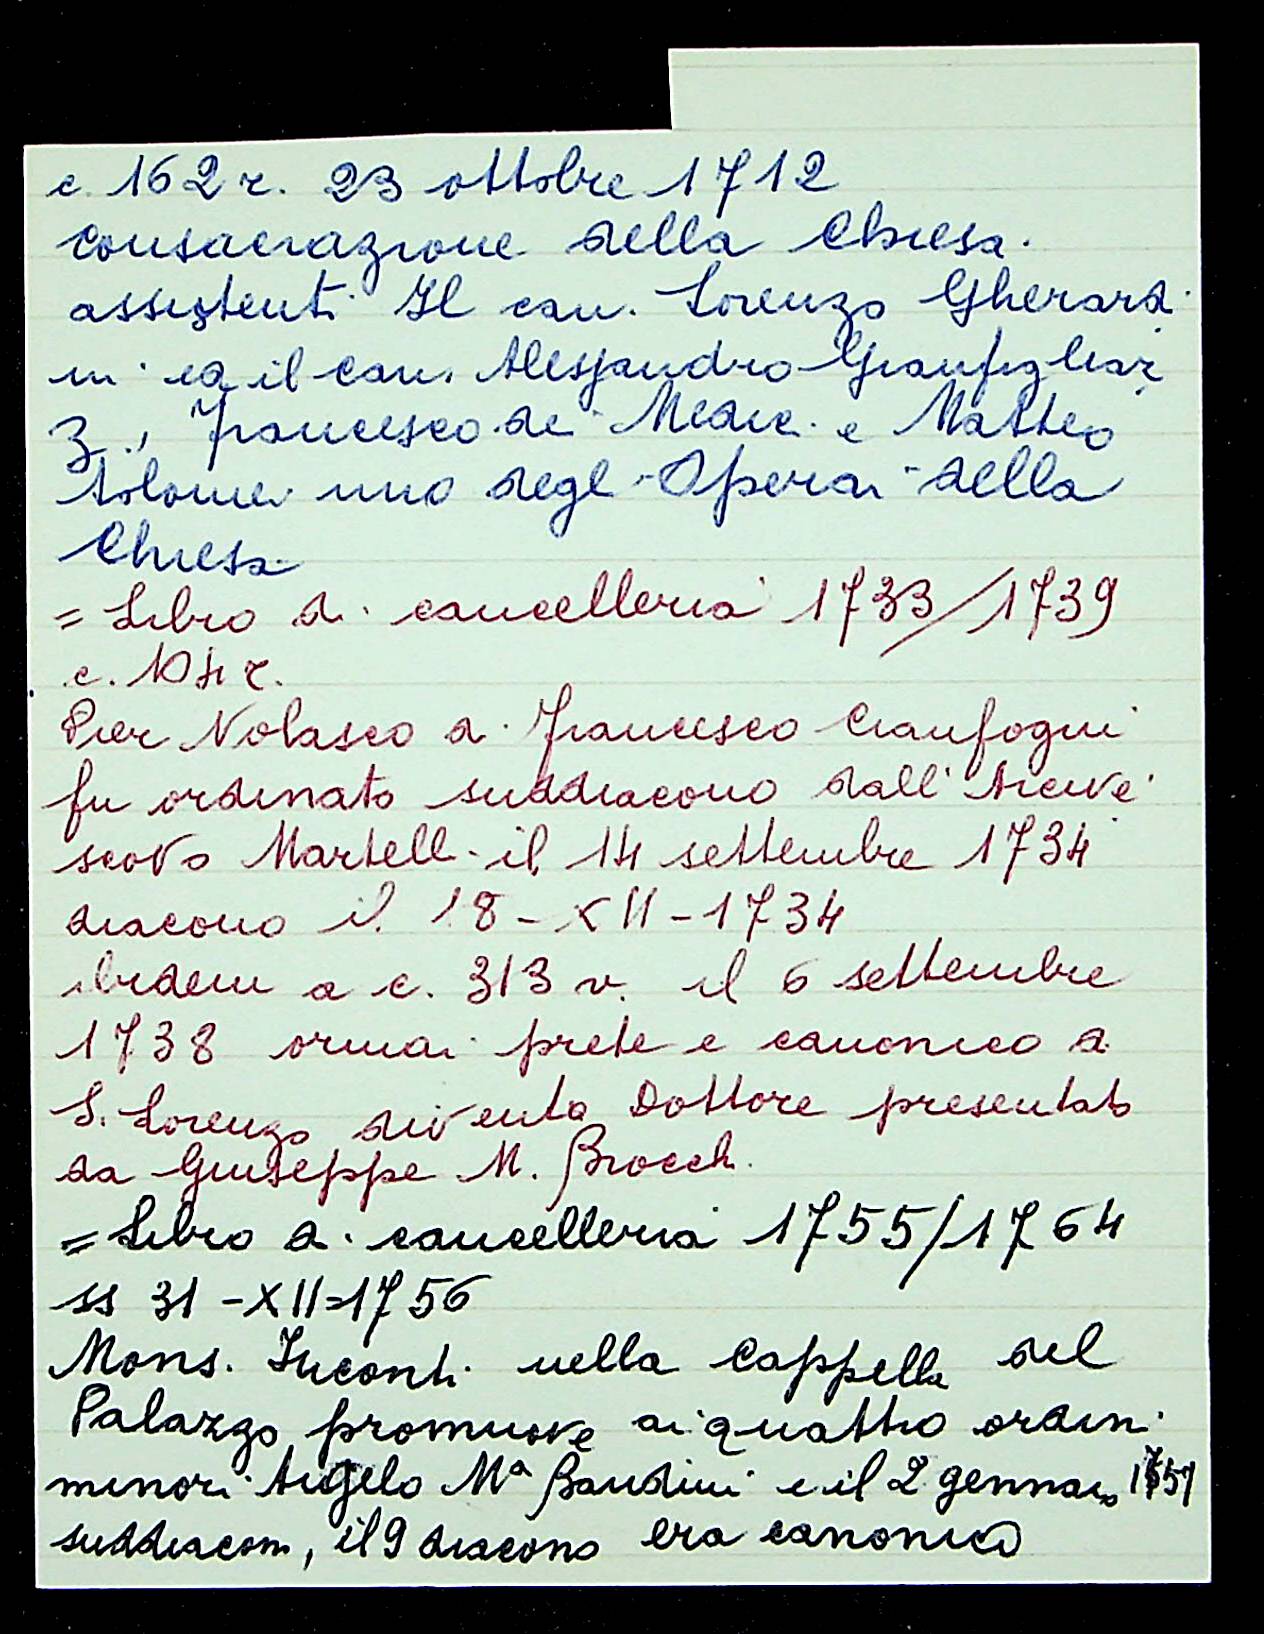 c. 162 r. 23 ottobre 1712
consacrazione della Chiesa.
assistenti Il can. Lorenzo Gherardi
ni ed il Can. Alessandro Gianfigliaz
zi, Francesco de' Medici e Matteo
Tolomei uno degli Operai della
Chiesa
= Libro di cancelleria 1733/1739
c. 104 r.
Pier Nolasco di Francesco Cianfogni
fu ordinato suddiacono dall'Arcive
scovo Martelli il 14 settembre 1734
diacono il 18-XII-1734
ibidem a c. 313 v. il 6 settembre
1738 ormai prete e canonico di
S. Lorenzo diventa Dottore presentato
da Giuseppe M. Brocchi.
= Libro di cancelleria 1755/1764
ss 31-XII=1756
Mons. Incontri nella Cappella del
Palazzo promuove ai quattro ordini
minori Angelo Mª Bandini e il 2 gennaio 1757
suddiacono, il 9 diacono era canonico